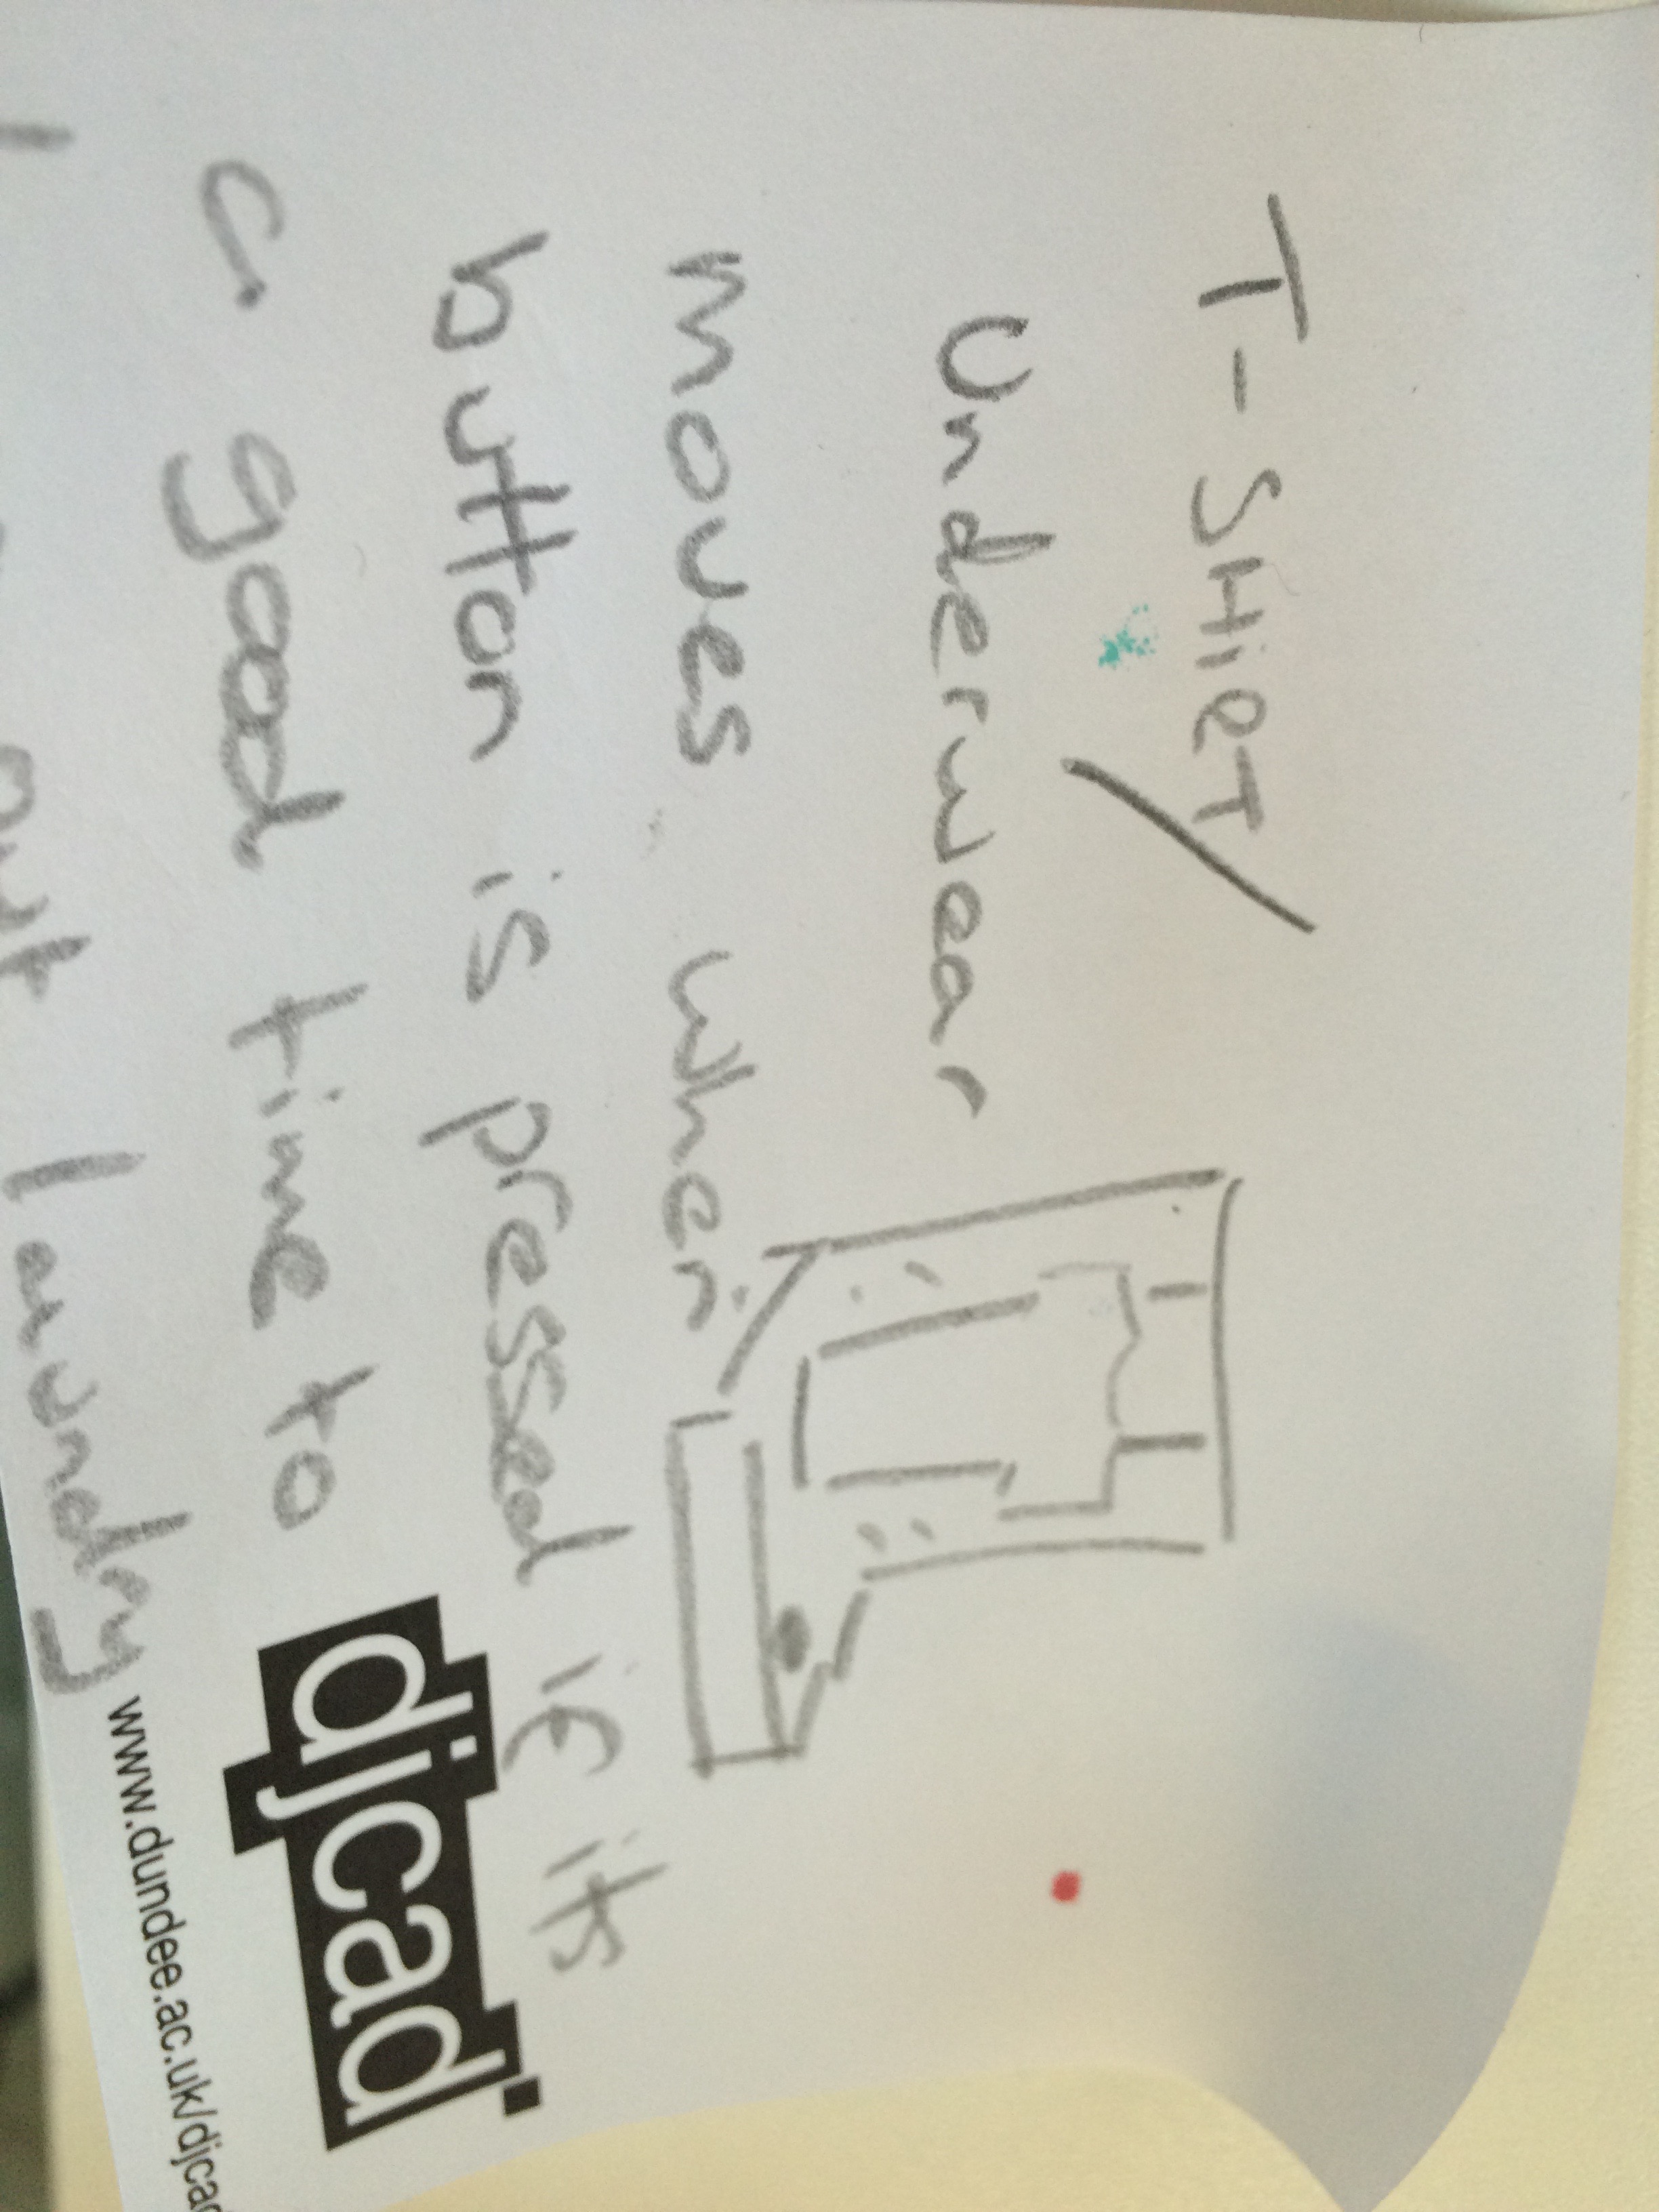 T-SHiRT /
Underwear
moves when
button is pressed if its
a good time to
out laundry
djcad
www.dundee.ac.uk/djcad